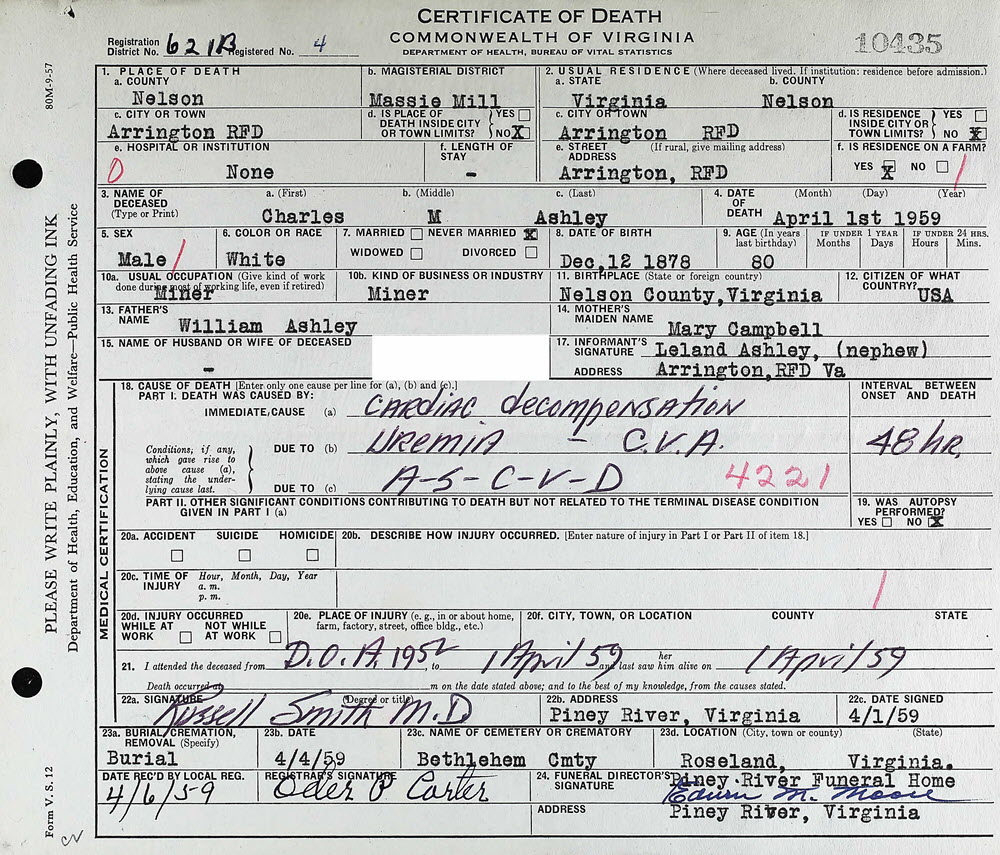 CERTIFICATE OF DEATH
COMMONWEALTH OF VIRGINIA
DEPARTMENT OF HEALTH, BUREAU OF VITAL STATISTICS
Registration District No. 621B Registered No. 4
10435
80M-9-57
PLEASE WRITE PLAINLY, WITH UNFADING INK
Department of Health, Education, and Welfare—Public Health Service
Form V. S. 12
1. PLACE OF DEATH
a. COUNTY
Nelson
b. MAGISTERIAL DISTRICT
Massie Mill
2. USUAL RESIDENCE (Where deceased lived. If institution: residence before admission.)
a. STATE b. COUNTY
Virginia Nelson
c. CITY OR TOWN
Arrington RFD
d. IS PLACE OF DEATH INSIDE CITY OR TOWN LIMITS? YES NO X
c. CITY OR TOWN
Arrington RFD
d. IS RESIDENCE INSIDE CITY OR TOWN LIMITS? YES NO X
e. HOSPITAL OR INSTITUTION
0 None
f. LENGTH OF STAY
-
e. STREET ADDRESS (If rural, give mailing address)
Arrington, RFD
f. IS RESIDENCE ON A FARM?
YES X NO 1
3. NAME OF DECEASED (Type or Print)
a. (First) b. (Middle) c. (Last)
Charles M Ashley
4. DATE OF DEATH (Month) (Day) (Year)
April 1st 1959
5. SEX
Male 1
6. COLOR OR RACE
White
7. MARRIED NEVER MARRIED X
WIDOWED DIVORCED
8. DATE OF BIRTH
Dec,12 1878
9. AGE (In years last birthday)
80
IF UNDER 1 YEAR
Months Days
IF UNDER 24 HRS.
Hours Mins.
10a. USUAL OCCUPATION (Give kind of work done during most of working life, even if retired)
Miner
10b. KIND OF BUSINESS OR INDUSTRY
Miner
11. BIRTHPLACE (State or foreign country)
Nelson County,Virginia
12. CITIZEN OF WHAT COUNTRY?
USA
13. FATHER'S NAME
William Ashley
14. MOTHER'S MAIDEN NAME
Mary Campbell
15. NAME OF HUSBAND OR WIFE OF DECEASED
-
17. INFORMANT'S SIGNATURE Leland Ashley, (nephew)
ADDRESS Arrington,RFD Va
MEDICAL CERTIFICATION
18. CAUSE OF DEATH [Enter only one cause per line for (a), (b) and (c).]
PART I. DEATH WAS CAUSED BY:
IMMEDIATE CAUSE (a) CARDIAC decompensation
INTERVAL BETWEEN ONSET AND DEATH
Conditions, if any, which gave rise to above cause (a), stating the underlying cause last.
DUE TO (b) UREMIA - C.V.A. 48 hr.
DUE TO (c) A-S-C-V-D 4221
PART II. OTHER SIGNIFICANT CONDITIONS CONTRIBUTING TO DEATH BUT NOT RELATED TO THE TERMINAL DISEASE CONDITION GIVEN IN PART I (a)
19. WAS AUTOPSY PERFORMED?
YES NO X
20a. ACCIDENT SUICIDE HOMICIDE
20b. DESCRIBE HOW INJURY OCCURRED. [Enter nature of injury in Part I or Part II of item 18.]
20c. TIME OF INJURY Hour, Month, Day, Year
a. m.
p. m.
1
20d. INJURY OCCURRED
WHILE AT WORK NOT WHILE AT WORK
20e. PLACE OF INJURY (e. g., in or about home, farm, factory, street, office bldg., etc.)
20f. CITY, TOWN, OR LOCATION COUNTY STATE
21. I attended the deceased from D.O.A. 1952, to 1 April 59 and last saw her him alive on 1 April 59
Death occurred at m on the date stated above; and to the best of my knowledge, from the causes stated.
22a. SIGNATURE (Degree or title)
Russell Smith M.D
22b. ADDRESS
Piney River, Virginia
22c. DATE SIGNED
4/1/59
23a. BURIAL, CREMATION, REMOVAL (Specify)
Burial
23b. DATE
4/4/59
23c. NAME OF CEMETERY OR CREMATORY
Bethlehem Cmty
23d. LOCATION (City, town or county) (State)
Roseland, Virginia.
DATE REC'D BY LOCAL REG.
4/6/59
REGISTRAR'S SIGNATURE
Oder P Carter
24. FUNERAL DIRECTOR'S SIGNATURE
Piney River Funeral Home
Edwin M. Moore
ADDRESS Piney River, Virginia